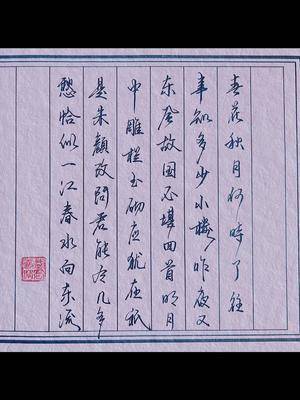 春花秋月何時了往
事知多少小樓昨夜又
东風故国不堪回首明月
中雕栏玉砌应犹在祇
是朱顏改問君能有几多
愁恰似一江春水向东流